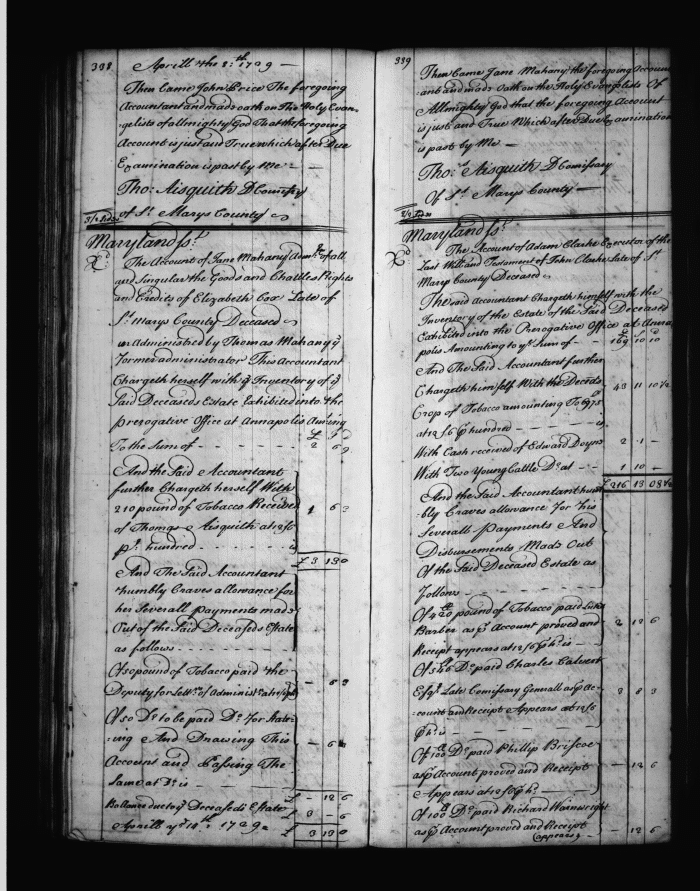 338
Aprill the 2:th 1729
Then Came John Price The foregoing
Accountant and made oath on The Holy Evan-
gelists of allmighty God That the foregoing
Account is just and True which after Due
Examination is past by Me
Tho: Aisquith D Comisry
of St Marys County
Maryland ss.t
The Account of Jane Mahany Adm.x of all
and Singular the Goods and Chattles Rights
and Credits of Elizabeth Cox Late of
St Marys County Deceased
un Administred by Thomas Mahany ye
former administrator This Accountant
Chargeth herself with ye Inventory of ye
Said Deceaseds Estate Exhibited into the
prerogative Office at Annapolis Am'ting
£ s d
To the Sum of - 2 6 9
And the Said Accountant
further Chargeth herself With
210 pound of Tobacco Received
of Thomas Aisquith at 12/6 1 6 3
p.r hundred
£ 3 13 0
And The Said Accountant
humbly Craves allowance for
her Severall payments made
Out of the Said Deceaseds Estate
as follows
Of 50 pound of Tobacco paid the
Deputy for Lett.rs of Administ.ration - 6 3
Of 50 D.o to be paid D.o for State-
ing And Drawing This
Account and Passing The - 6 3
Same at D.o is
£ - 12 6
Ballance due to ye Deceaseds Estate £ 3 - 6
Aprill ye 14th 1729 £ 3 13 0
339
Then Came Jane Mahany the foregoing Account
ant and made Oath on the Holy Evangelists Of
Allmighty God that the foregoing Account
is just and True Which after Due Examination
is past by Me
Tho.s Aisquith D Comissary
Of St Marys County
Maryland ss.t
The Account of Adam Clarke Executor of the
Last Will and Testament of John Clarke Late of St
Marys County Deceased
The said Accountant Chargeth himself with the
Inventory of the Estate of the Said Deceased
Exhibited into the Prerogative Office at Anna
polis Amounting to ye Sum of - 169 10 10
And The Said Accountant further
Chargeth himself With the Deceds 43 11 10½
Crop of Tobacco amounting To 6975
at 12/6 p hundred
With Cash received of Edward Doyne 2 1 -
With Two Young Cattle D.o at - 1 10 -
£ 216 13 08½
And the Said Accountant hum
bly Craves allowance for his
Severall Payments And
Disbursements Made Out
Of the Said Deceased Estate as
follows
Of 420 pound of Tobacco paid Luke
Barber as p Account proved and 2 12 6
Receipt appears at 12/6 p h is
Of 546 D.o paid Charles Calvert
Esq.r Late Comissary Generall as p Ac-
count and Receipt Appears at 12/6 3 8 3
p h is
Of 100 D.o paid Phillip Briscoe
as p Account proved and Receipt - 12 6
Appears at 12/6 p h
Of 100 D.o paid Richard Wainwright
as p Account proved and Receipt
appears - 12 6